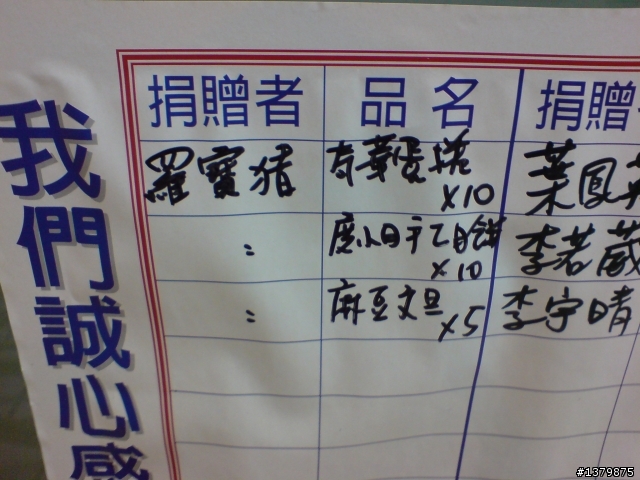 我們誠心感
捐贈者 品名 捐贈
羅寶猪
x10
葉鳳
:
x10
李若葳
:
麻豆文旦 x5
李宇晴
#1379875